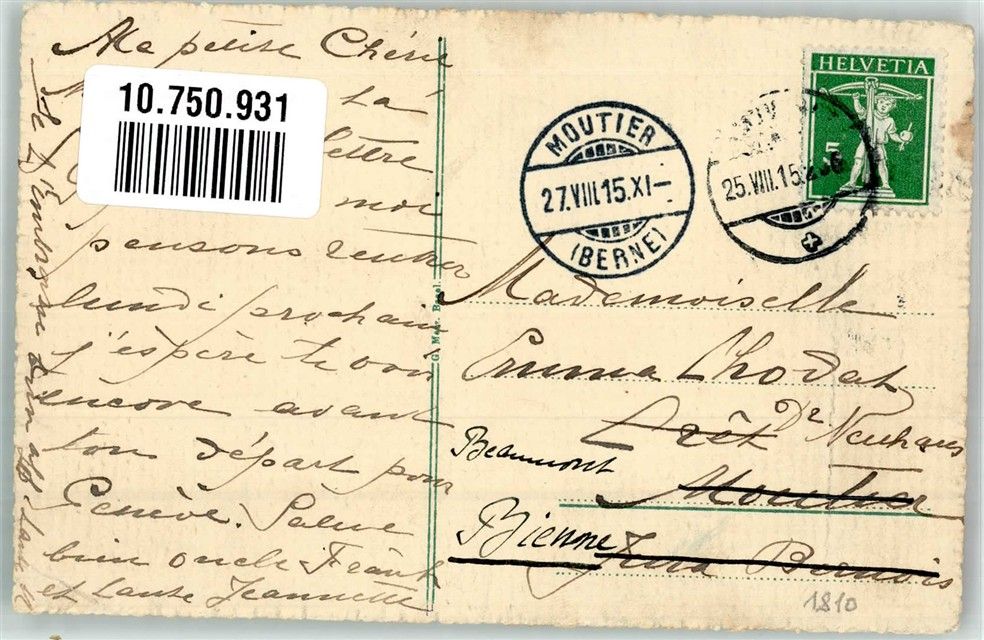 Ma petite Chérie
10.750.931
là
lettre
moi
pensons rentrer
lundi prochain
j'espère te voir
encore avant
ton départ pour
Genève. Salue
bien oncle Frank
et tante Jeannette
Je t'embrasse
G. Metz, Basel
HELVETIA
5
MOUTIER
27.VIII.15.XI-
(BERNE)
25.VIII.15
Mademoiselle
Emma Chodat
Crêt Dr Neuhaus
Beaumont
Moutier
Bienne Jura Bernois
1810